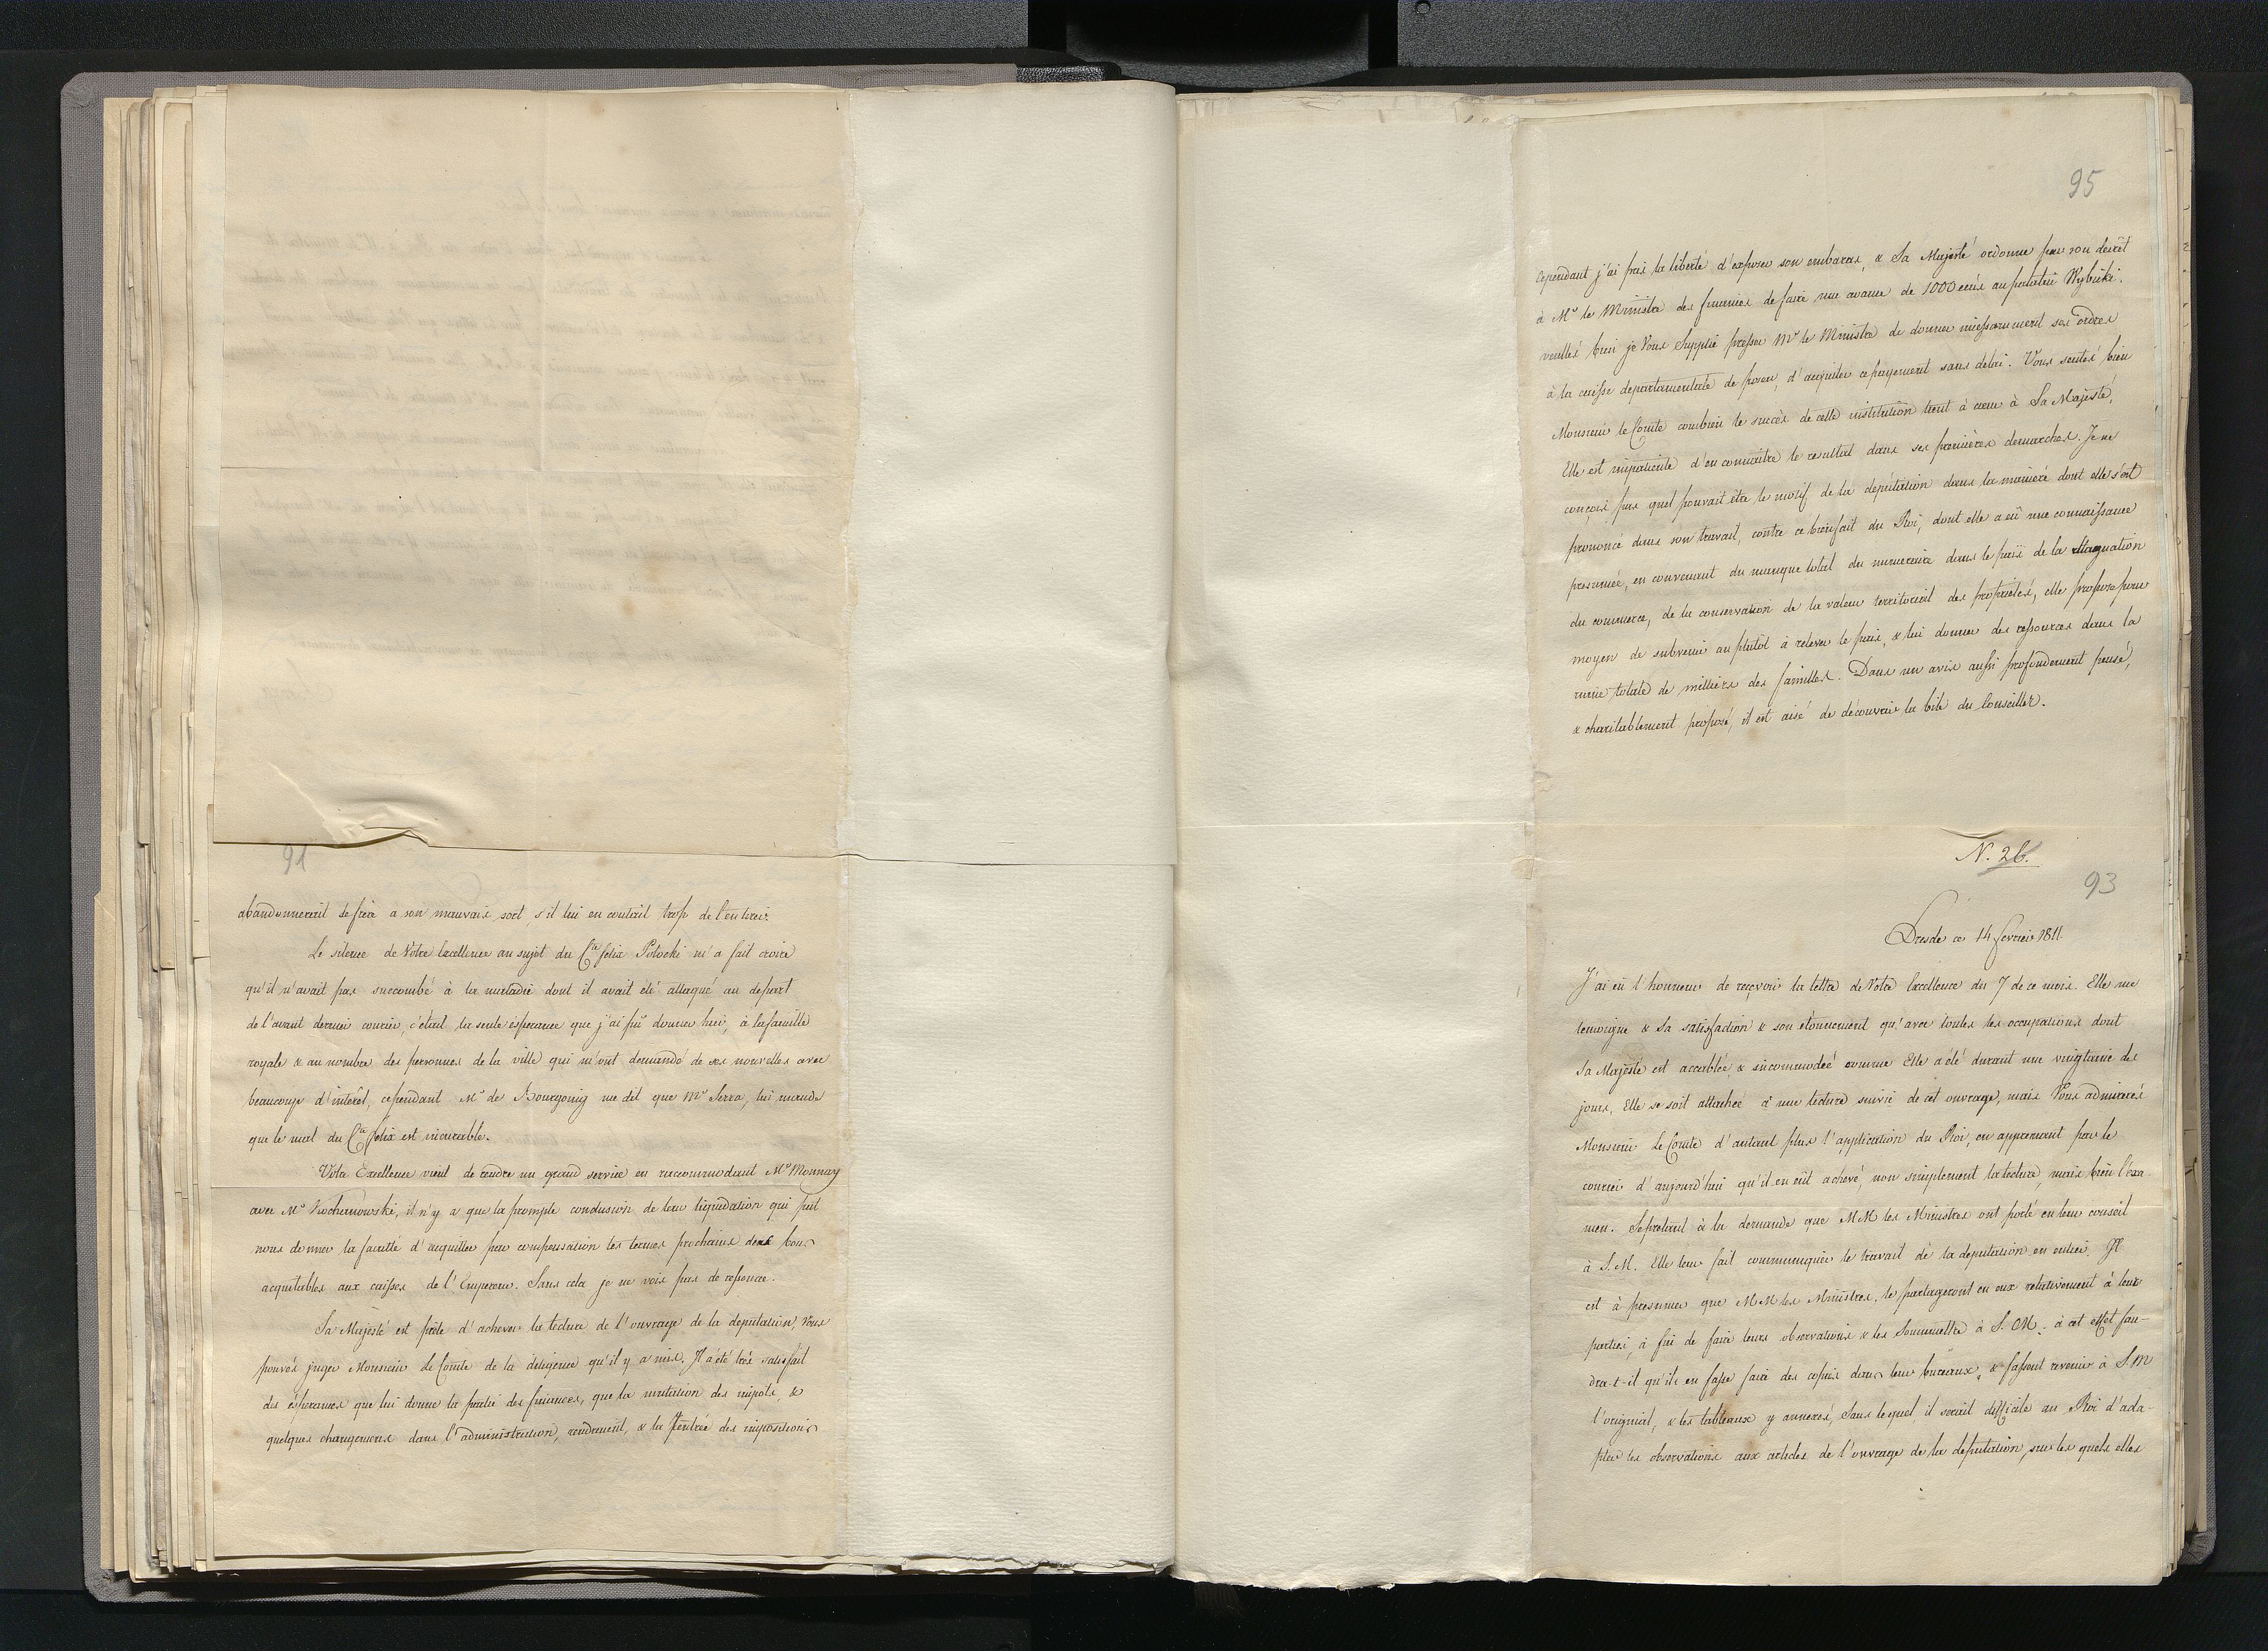 91
abandonnerait le frère a son mauvais sort, s'il lui en coutait trop de l'enlever.
Le silence de Votre Excellence au sujet du Cte felix Potocki m'a fait croire
qu'il n'avait pas succombé à la maladie dont il avait été attaqué au depart
de l'avant dernier courier, c'était la seule ésperance que j'ai pû donner hier, à la famille
royale & au nombre des personnes de la ville qui m'ont demandé de ses nouvelles avec
beaucoup d'intérêt, cependant Mr de Bourgoing me dit que Mr Serra, lui mande
que le mal du Cte felix est incurable.
Votre Excellence vient de rendre un grand service en raccommodant Mr Monnay
avec Mr Kochanowski, il n'y a que la prompte conclusion de leur liquidation qui put
nous donner la facilité d'acquitter par compensation les termes prochains des bons
acquitables aux caisses de l'Empereur. Sans cela je ne vois pas de ressource.
Sa Majesté est prête d'achever la lecture de l'ouvrage de la deputation, Vous
pouvés juger Monsieur le Comte de la diligence qu'il y a mise. Il a été très satisfait
des ésperances que lui donne la partie des finances, que la mutation des impots, &
quelques changemens dans l'administration, rendraient, & la rentrée des impositions
95
cependant j'ai pris la liberté d'exposer son embaras, & Sa Majesté ordonne par son decrèt
à Mr le Ministre des finances de faire une avance de 1000 ecus au palatin Wybicki.
veuillés bien je Vous Supplie presser Mr le Ministre de donner incessamment ses ordres
à la caisse departamentale de posen, d'acquiter ce payement sans delai. Vous sentés bien
Monsieur le Comte combien le succès de cette institution tient à coeur à Sa Majesté,
Elle est impatiente d'en connaitre le resultat dans ses premières demarches. Je ne
conçois pas quel pouvait être le motif de la députation dans la manière dont elle s'est
prononcé dans son travail, contre ce bienfait du Roi, dont elle a eû une connaissance
presumée, en convenant du manque total du numeraire dans le païs de la stagnation
du commerce, de la conservation de la valeur territorial des propriétés, elle propose pour
moyen de subvenir au plutôt à relever le païs, & lui donner des ressources dans la
ruine totale de milliers des familles. Dans un avis aussi profondement pensé,
& charitablement proposé, il est aisé de découvrir la bile du Conseiller.
N. 26.
93
Dresde ce 14 fevrier 1811.
J'ai eû l'honneur de reçevoir la lettre de Votre Excellence du 7 de ce mois. Elle me
temoigne & Sa satisfaction & son étonnement qu'avec toutes les occupations dont
Sa Majesté est accablée & incommodée comme Elle a été durant une vingtaine des
jours, Elle se soit attachée à une lecture suivie de cet ouvrage, mais Vous admirerés
Monsieur le Comte d'autant plus l'application du Roi, en apprenant par le
courier d'aujourd'hui qu'il en eût achevé, non simplement la lecture, mais bien l'exa-
men. Se pretant à la demande que MM les Ministres ont porté en leur conseil
à S.M. Elle leur fait communiquer le travail de la deputation en entier. Il
est à presumer que MM les Ministres, le partageront en eux relativement à leurs
parties, à fin de faire leurs observations & les Soummettre à S.M.; à cet effet fau-
dra-t-il qu'ils en fasse faire des copies dans leur bureaux, & fassent revenir à S.M
l'original, & les tableaux y annexés, Sans lequel, il serait difficile au Roi d'ada-
pter les observations aux articles de l'ouvrage de la deputation, sur les quels elles